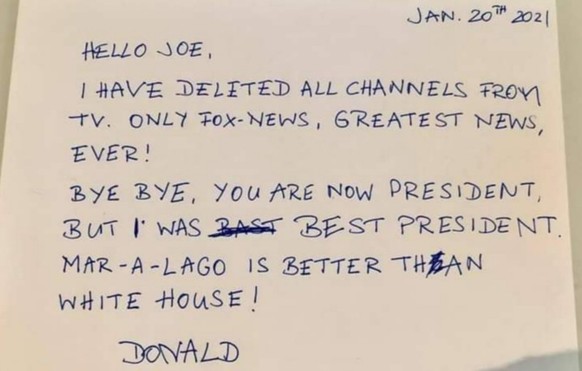 JAN. 20TH 2021
HELLO JOE,
I HAVE DELETED ALL CHANNELS FROM
TV. ONLY FOX-NEWS, GREATEST NEWS,
EVER!
BYE BYE, YOU ARE NOW PRESIDENT,
BUT I WAS BAST BEST PRESIDENT.
MAR-A-LAGO IS BETTER THAN
WHITE HOUSE!
DONALD